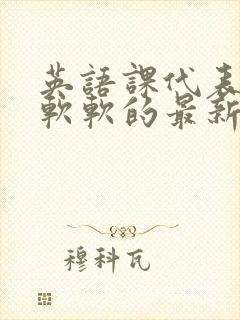 英語課代表
軟軟的最新
穆科瓦